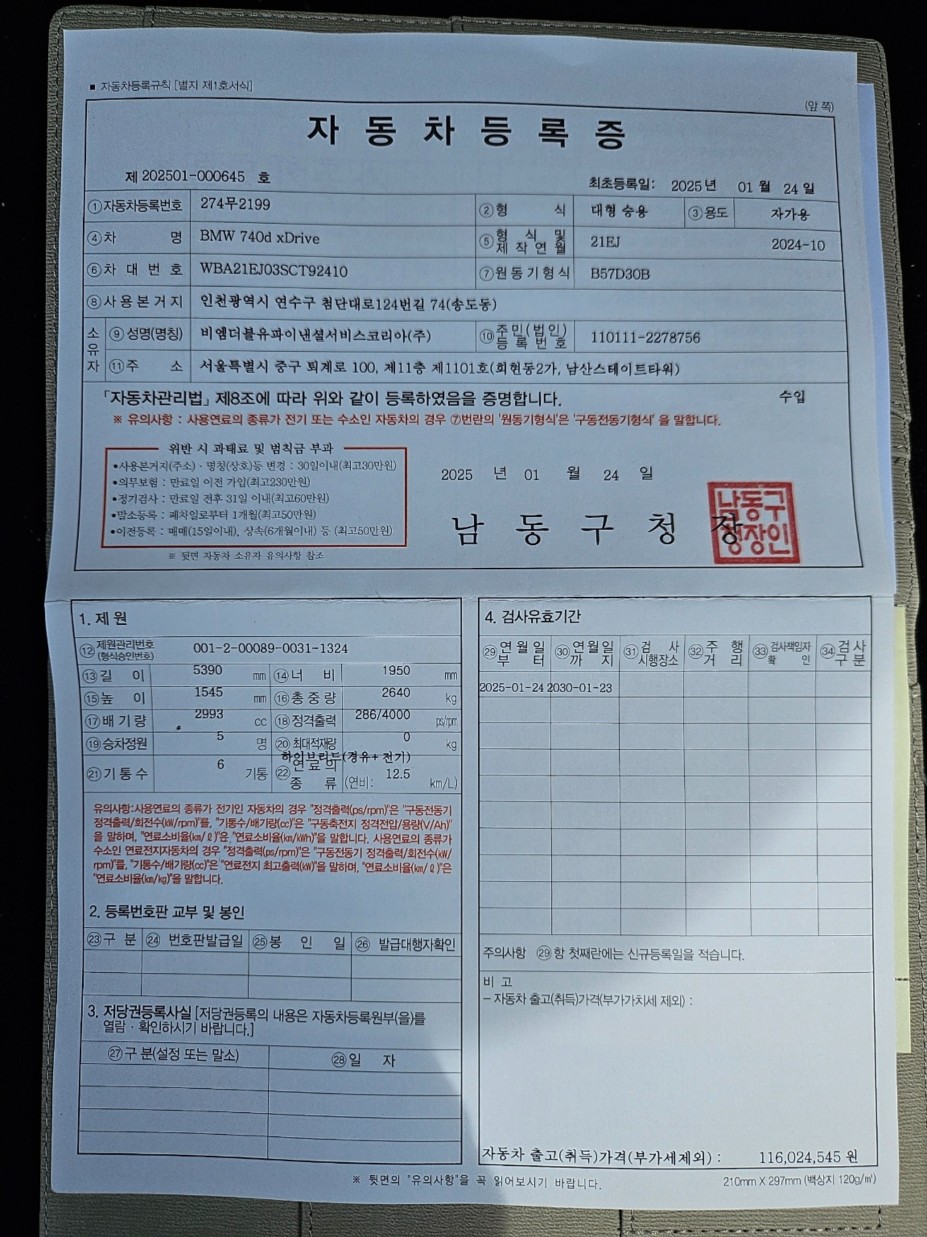 ■ 자동차등록규칙 [별지 제1호서식]
(앞 쪽)
자 동 차 등 록 증
제 202501-000645 호
최초등록일: 2025 년 01 월 24 일
①자동차등록번호 274무2199 ②형 식 대형 승용 ③용도 자가용
④차 명 BMW 740d xDrive ⑤형 식 및 제 작 연 월 21EJ 2024-10
⑥차 대 번 호 WBA21EJ03SCT92410 ⑦원동기형식 B57D30B
⑧사용본거지 인천광역시 연수구 첨단대로124번길 74(송도동)
소유자 ⑨성명(명칭) 비엠더블유파이낸셜서비스코리아(주) ⑩주민(법인) 등 록 번 호 110111-2278756
⑪주 소 서울특별시 중구 퇴계로 100, 제11층 제1101호(회현동2가, 남산스테이트타워)
「자동차관리법」 제8조에 따라 위와 같이 등록하였음을 증명합니다. 수입
※ 유의사항 : 사용연료의 종류가 전기 또는 수소인 자동차의 경우 ⑦번란의 '원동기형식'은 '구동전동기형식' 을 말합니다.
위반 시 과태료 및 범칙금 부과
•사용본거지(주소)·명칭(상호)등 변경 : 30일이내(최고30만원)
•의무보험 : 만료일 이전 가입(최고230만원)
•정기검사 : 만료일 전후 31일 이내(최고60만원)
•말소등록 : 폐차일로부터 1개월(최고50만원)
•이전등록 : 매매(15일이내), 상속(6개월이내) 등 (최고50만원)
※ 뒷면 자동차 소유자 유의사항 참조
2025 년 01 월 24 일
남 동 구 청 장
남동구
청장인
1. 제 원
⑫제원관리번호 (형식승인번호) 001-2-00089-0031-1324
⑬길 이 5390 mm ⑭너 비 1950 mm
⑮높 이 1545 mm ⑯총 중 량 2640 kg
⑰배 기 량 2993 cc ⑱정격출력 286/4000 ps/rpm
⑲승차정원 5 명 ⑳최대적재량 0 kg
하이브리드(경유+전기)
㉑기 통 수 6 기통 ㉒연 료 의 종 류 (연비: 12.5 km/L)
유의사항:사용연료의 종류가 전기인 자동차의 경우 "정격출력(ps/rpm)"은 "구동전동기
정격출력/회전수(kW/rpm)"를, "기통수/배기량(cc)"은 "구동축전지 정격전압/용량(V/Ah)"
을 말하며, "연료소비율(㎞/ℓ)"은, "연료소비율(㎞/kWh)"을 말합니다. 사용연료의 종류가
수소인 연료전지자동차의 경우 "정격출력(ps/rpm)"은 "구동전동기 정격출력/회전수(kW/
rpm)"를, "기통수/배기량(cc)"은 "연료전지 최고출력(kW)"을 말하며, "연료소비율(㎞/ℓ)"은
"연료소비율(㎞/kg)"을 말합니다.
2. 등록번호판 교부 및 봉인
㉓구 분 ㉔ 번호판발급일 ㉕봉 인 일 ㉖ 발급대행자확인
3. 저당권등록사실 [저당권등록의 내용은 자동차등록원부(을)를
열람 · 확인하시기 바랍니다.]
㉗구 분(설정 또는 말소) ㉘일 자
4. 검사유효기간
㉙연 월 일 부 터 ㉚연 월 일 까 지 ㉛검 사 시행장소 ㉜주 행 거 리 ㉝검사책임자 확 인 ㉞검 사 구 분
2025-01-24 2030-01-23
주의사항 ㉙항 첫째란에는 신규등록일을 적습니다.
비 고
– 자동차 출고(취득)가격(부가가치세 제외) :
자동차 출고(취득)가격(부가세제외) : 116,024,545 원
※ 뒷면의 "유의사항"을 꼭 읽어보시기 바랍니다.
210mm X 297mm (백상지 120g/㎡)